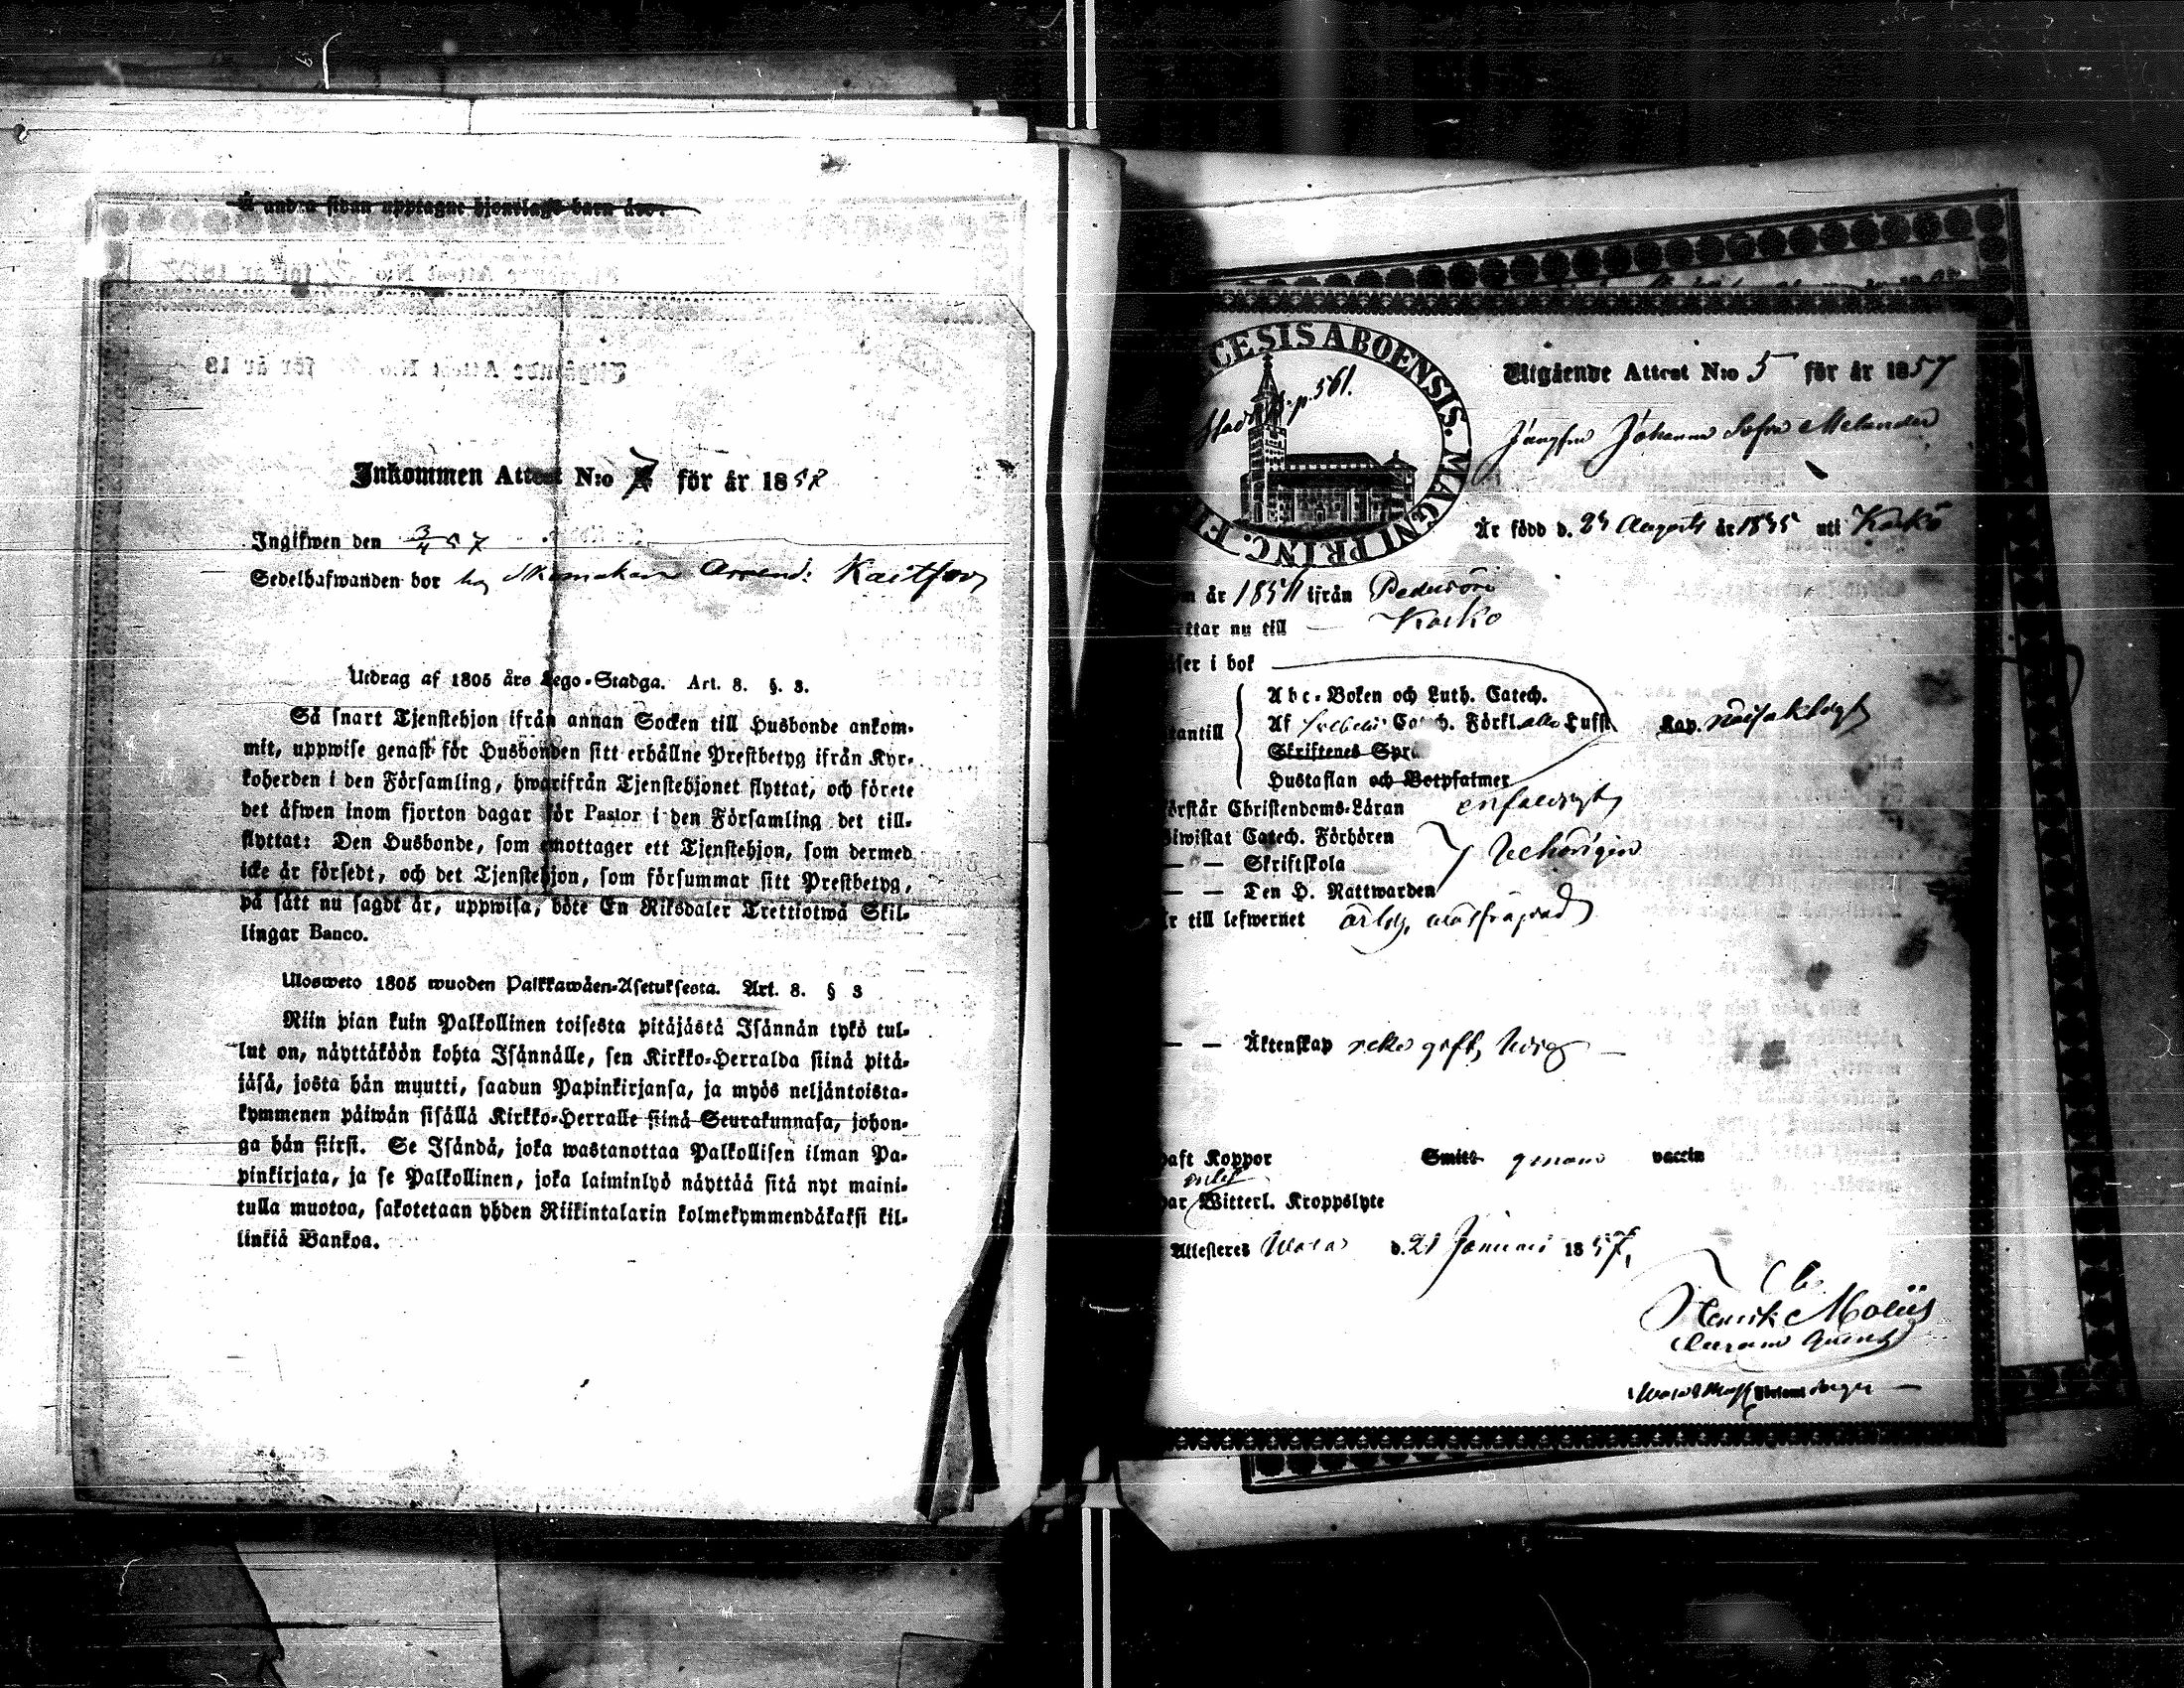 Å andra sidan upptagne hjonelags barn äro:
Inkommen Attest N:o 7 för år 1857
Ingifwen den 3/4 57
Sedelhafwanden bor hos Skomakare Arrend:
Utdrag af 1805 års Lego-Stadga. Art. 8. §. 3.
Så snart Tjenstehjon ifrån annan Socken till Husbonde ankom-
mit, uppwise genast för Husbonden sitt erhållne Prestbetyg ifrån Kyr-
koherden i den Församling, hwarifrån Tjenstehjonet flyttat, och förete
det äfwen inom fjorton dagar för Pastor i den Församling det till-
flyttat: Den Husbonde, som emottager ett Tjenstehjon, som dermed
icke är försedt, och det Tjenstehjon, som försummar sitt Prestbetyg,
på sätt nu sagdt är, uppwisa, böte En Riksdaler Trettiotwå Skil-
lingar Banco.
Ulosweto 1805 wuoden Palkkawäen-Asetuksesta. Art. 8. § 3
Niin pian kuin Palkollinen toisesta pitäjästä Isännän tykö tul-
lut on, näyttäköön kohta Isännälle, sen Kirkko-Herralda siinä pitä-
jäsä, josta hän muutti, saadun Papinkirjansa, ja myös neljäntoista-
kymmenen päiwän sisällä Kirkko-Herralle siinä Seurakunnasa, johon-
ga hän siirsi. Se Isändä, joka wastanottaa Palkollisen ilman Pa-
pinkirjata, ja se Palkollinen, joka laiminlyö näyttää sitä nyt maini-
tulla muotoa, sakotetaan yhden Riikintalarin kolmekymmendäkaksi kil-
linkiä Bankoa.
CESIS ABOENSIS. MAGNI PRINC. F
p. 561.
Utgående Attest N:o 5 för år 1857
Jungfru Johanna Sofia Melander
Är född d. 24 Augusti år 1835 uti Kaskö
m år 1854 ifrån Pedersöre
ttar nu till Kaskö
ser i bok
Abc-Boken och Luth. Catech.
tantill Af Catech. Förkl. alla Lufft. Kap. nöjaktigt
Skriftenes Språ
Hustaflan och Botpsalmer
örstår Christendoms-Läran enfaldigt
iwistat Catech. Förhören
— — Skriftskola behörigen
— — Den H. Nattwarden
r till lefwernet ärlig, oklanderlig
— — Äktenskap icke gift, ledig —
haft Koppor Smitt genom vaccin
har Witterl. Kroppslyte
Attesteres Wasa d. 21 Januari 1857,
Henrik